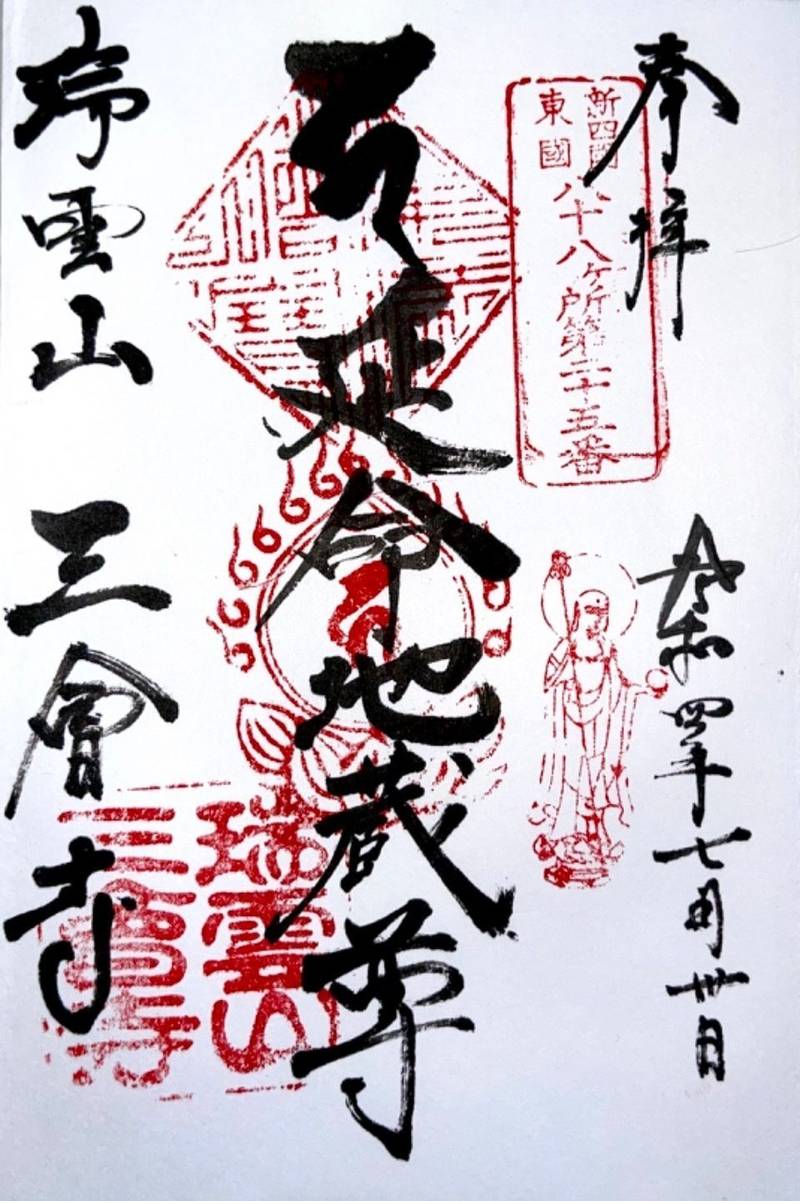 奉拝
令和四年七月卅日
新四国
東國八十八ヶ所第二十五番
延命地蔵尊
瑞雲山 三會寺
瑞雲山
三會寺